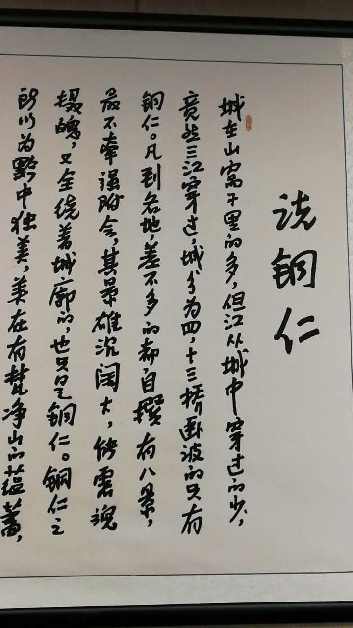 说铜仁
城在山窝子里的多,但江从城中穿过的少,
竟然三江穿过,城分为四,十三桥卧波的只有
铜仁。凡到各地差不多的都自撰有八景,
最不牵强附会,其景雄沉阔大,能震魂
摄魄,又全绕着城廓的,也只是铜仁。铜仁之
所以为黔中独美,美在有梵净山的蕴蓄,